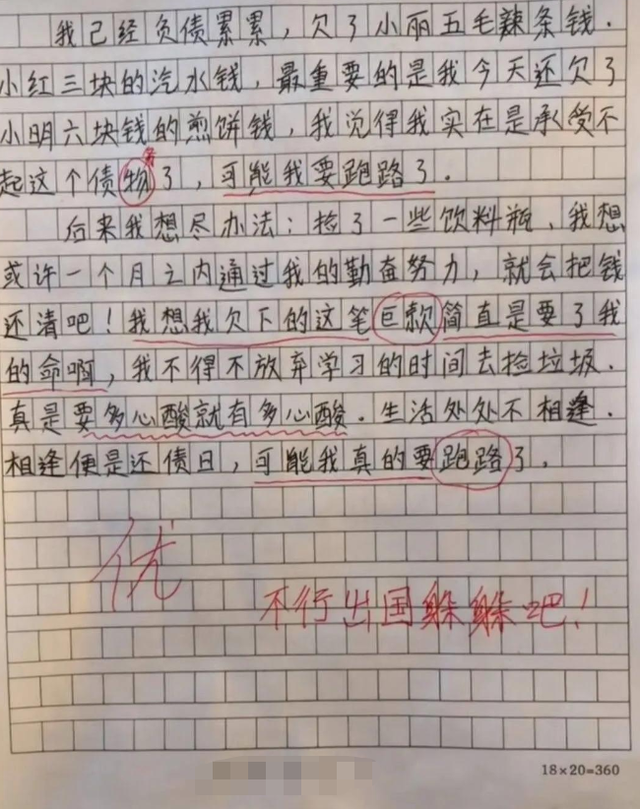 我己经负债累累，欠了小丽五毛辣条钱．
小红三块的汽水钱，最重要的是我今天还欠了
小明六块钱的煎饼钱，我觉得我实在是承受不
务
起这个债物了，可能我要跑路了．
后来我想尽办法：捡了一些饮料瓶、我想
或许一个月之内通过我的勤奋努力，就会把钱
还清吧！我想我欠下的这笔巨款简直是要了我
的命啊，我不得不放弃学习的时间去捡垃圾．
真是要多心酸就有多心酸．生活处处不相逢．
相逢便是还债日，可能我真的要跑路了．
优
不行出国躲躲吧！
18×20=360